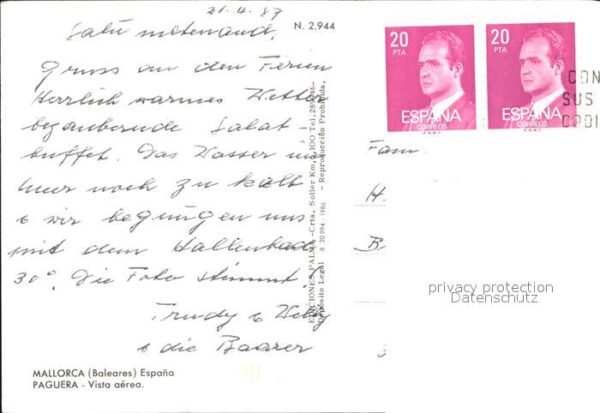 21.4.87
N. 2.944
Salü mitenand.
Gruss an den Ferien
Herrlich warmes Wetter
bezaubernde Salat-
buffet. Das Wasser im
Meer noch zu kalt
& wir begnügen uns
mit dem Hallenbad
30°. Die Foto stimmt!
Trudy & Willy
& die Baarer
MALLORCA (Baleares) España
PAGUERA - Vista aérea.
EDICIONES PALMA - Crta. Soller Km. 4,100 Tel. 289046
Depósito Legal B. 20.994 - 1986 - Reproducción Prohibida.
20
PTA
ESPAÑA
CORREOS
20
PTA
ESPAÑA
CORREOS
CON
SUS
Fam.
H.
B
privacy protection
Datenschutz